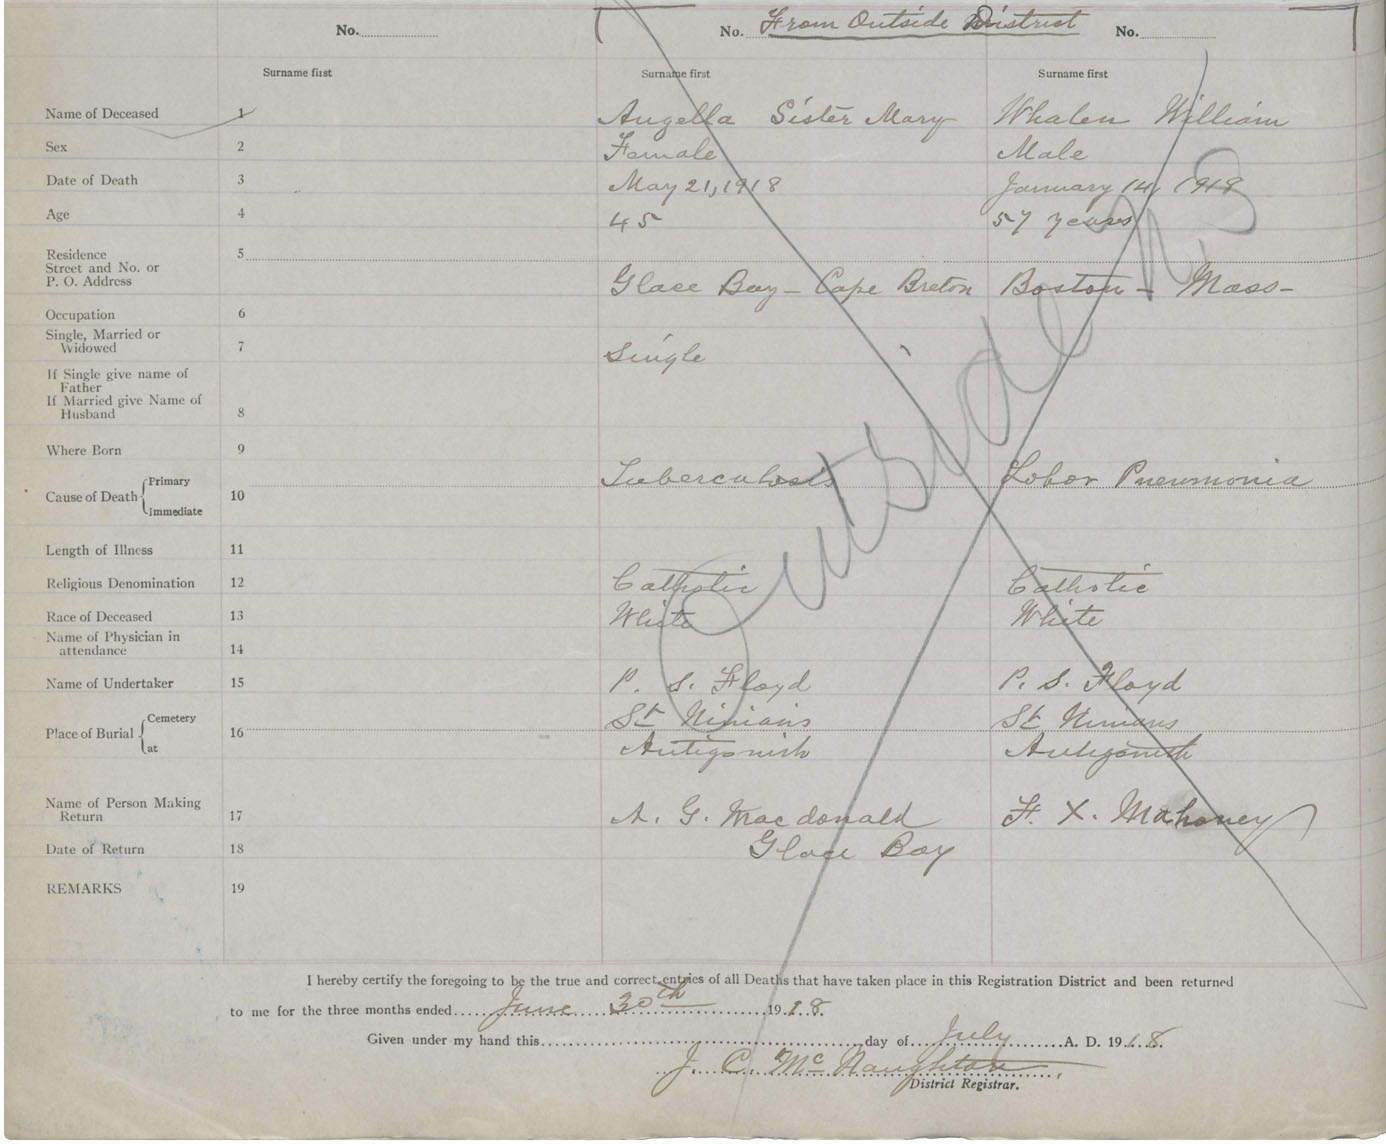 No. No. From Outside District No.
Surname first Surname first Surname first
Name of Deceased 1 Angella Sister Mary Whalen William
Sex 2 Female Male
Date of Death 3 May 21, 1918 January 14, 1918
Age 4 45 57 years
Residence 5
Street and No. or
P. O. Address Glace Bay - Cape Breton Boston - Mass -
Occupation 6
Single, Married or
Widowed 7 Single
If Single give name of
Father
If Married give Name of
Husband 8
Where Born 9
Cause of Death Primary Tuberculosis Lobar Pneumonia
10
Immediate
Outside
Length of Illness 11
Religious Denomination 12 Catholic Catholic
Race of Deceased 13 White White
Name of Physician in
attendance 14
Name of Undertaker 15 P. S. Floyd P. S. Floyd
Place of Burial Cemetery 16 St Ninians St Ninians
at Antigonish Antigonish
Name of Person Making
Return 17 A. G. Macdonald F. X. Mahoney
Date of Return 18 Glace Bay
REMARKS 19
I hereby certify the foregoing to be the true and correct entries of all Deaths that have taken place in this Registration District and been returned
to me for the three months ended June 30th 1918.
Given under my hand this day of July A. D. 1918.
J. C. McNaughton
District Registrar.